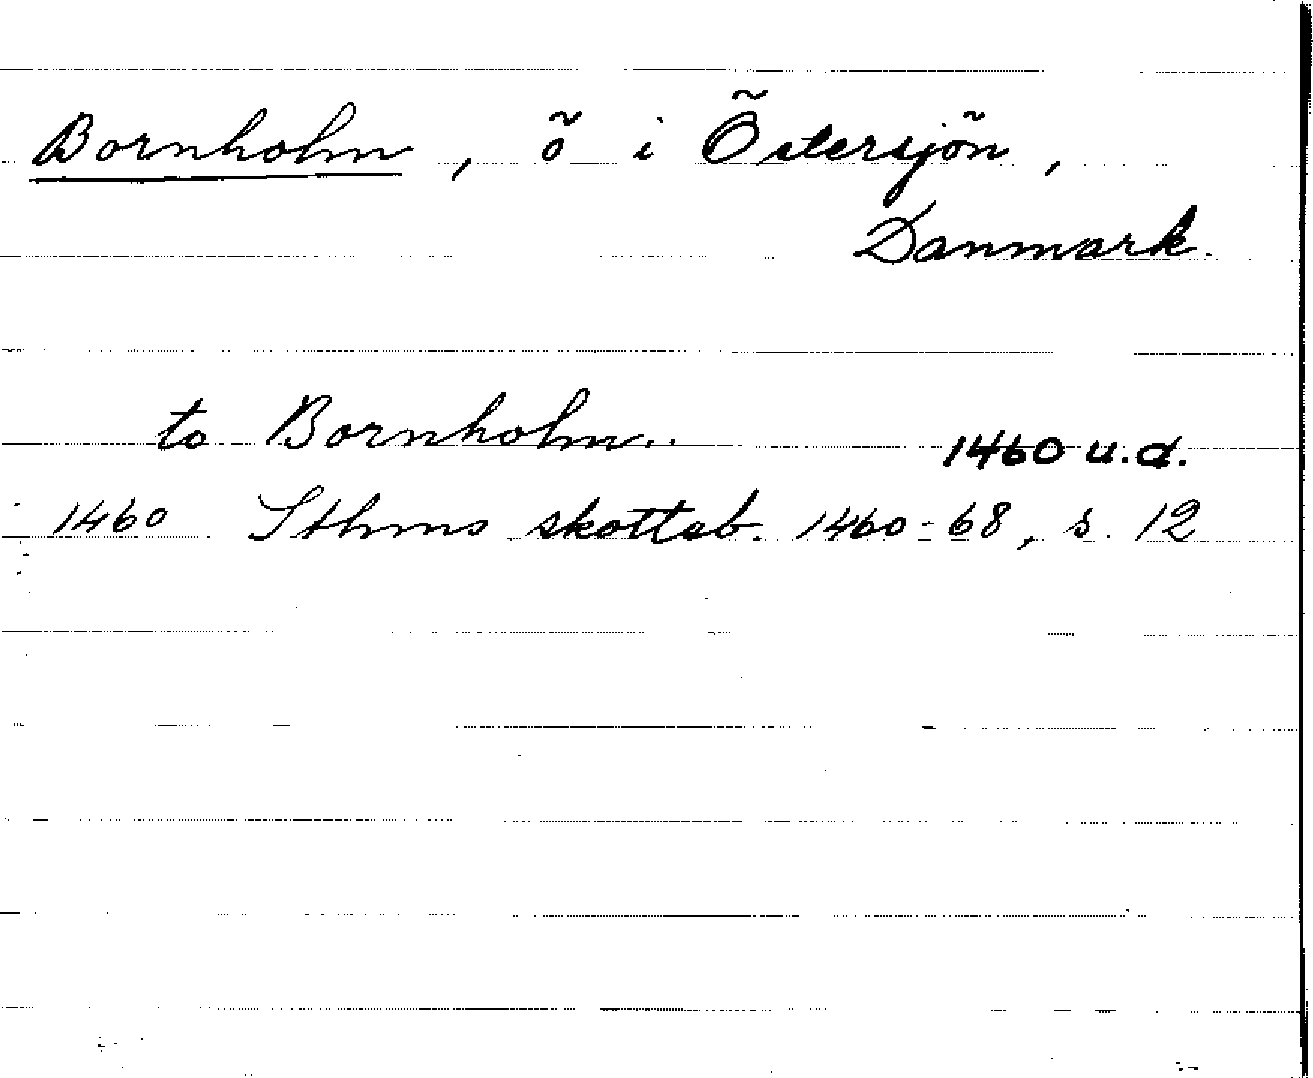 Bornholm, ö i Östersjön,
Danmark.
to Bornholm.. 1460 u.d.
1460 Sthms skotteb. 1460-68, s. 12